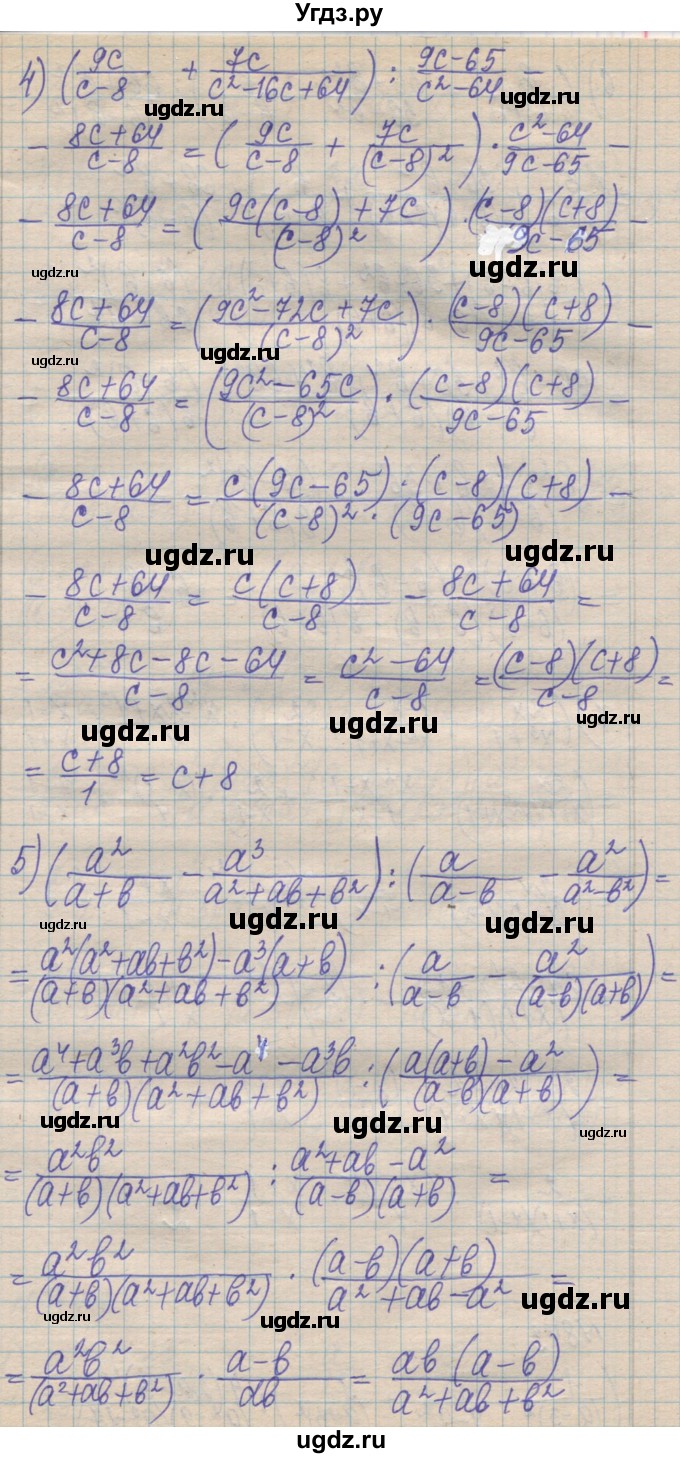 Угдз.ру
4) (9c/(c-8) + 7c/(c²-16c+64)) : (9c-65)/(c²-64) -
ugdz.ru
ugdz.ru
- (8c+64)/(c-8) = (9c/(c-8) + 7c/(c-8)²) · (c²-64)/(9c-65) -
- (8c+64)/(c-8) = ((9c(c-8)+7c)/(c-8)²) · (c-8)(c+8)/(9c-65) -
ugdz.ru
ugdz.ru
- (8c+64)/(c-8) = ((9c²-72c+7c)/(c-8)²) · (c-8)(c+8)/(9c-65) -
ugdz.ru
ugdz.ru
- (8c+64)/(c-8) = ((9c²-65c)/(c-8)²) · ((c-8)(c+8)/(9c-65)) -
- (8c+64)/(c-8) = c(9c-65)·(c-8)(c+8)/((c-8)²·(9c-65)) -
ugdz.ru
ugdz.ru
- (8c+64)/(c-8) = c(c+8)/(c-8) - (8c+64)/(c-8) =
= (c²+8c-8c-64)/(c-8) = (c²-64)/(c-8) = (c-8)(c+8)/(c-8) =
ugdz.ru
ugdz.ru
ugdz.ru
= (c+8)/1 = c+8
5) (a²/(a+b) - a³/(a²+ab+b²)) : (a/(a-b) - a²/(a²-b²)) =
ugdz.ru
ugdz.ru
ugdz.ru
= (a²(a²+ab+b²)-a³(a+b))/((a+b)(a²+ab+b²)) : (a/(a-b) - a²/((a-b)(a+b))) =
= (a⁴+a³b+a²b²-a⁴-a³b)/((a+b)(a²+ab+b²)) : ((a(a+b)-a²)/((a-b)(a+b))) =
ugdz.ru
ugdz.ru
ugdz.ru
= a²b²/((a+b)(a²+ab+b²)) : (a²+ab-a²)/((a-b)(a+b)) =
= a²b²/((a+b)(a²+ab+b²)) · (a-b)(a+b)/(a²+ab-a²) =
ugdz.ru
ugdz.ru
ugdz.ru
= a²b²/(a²+ab+b²) · (a-b)/ab = ab(a-b)/(a²+ab+b²)
ugdz.ru